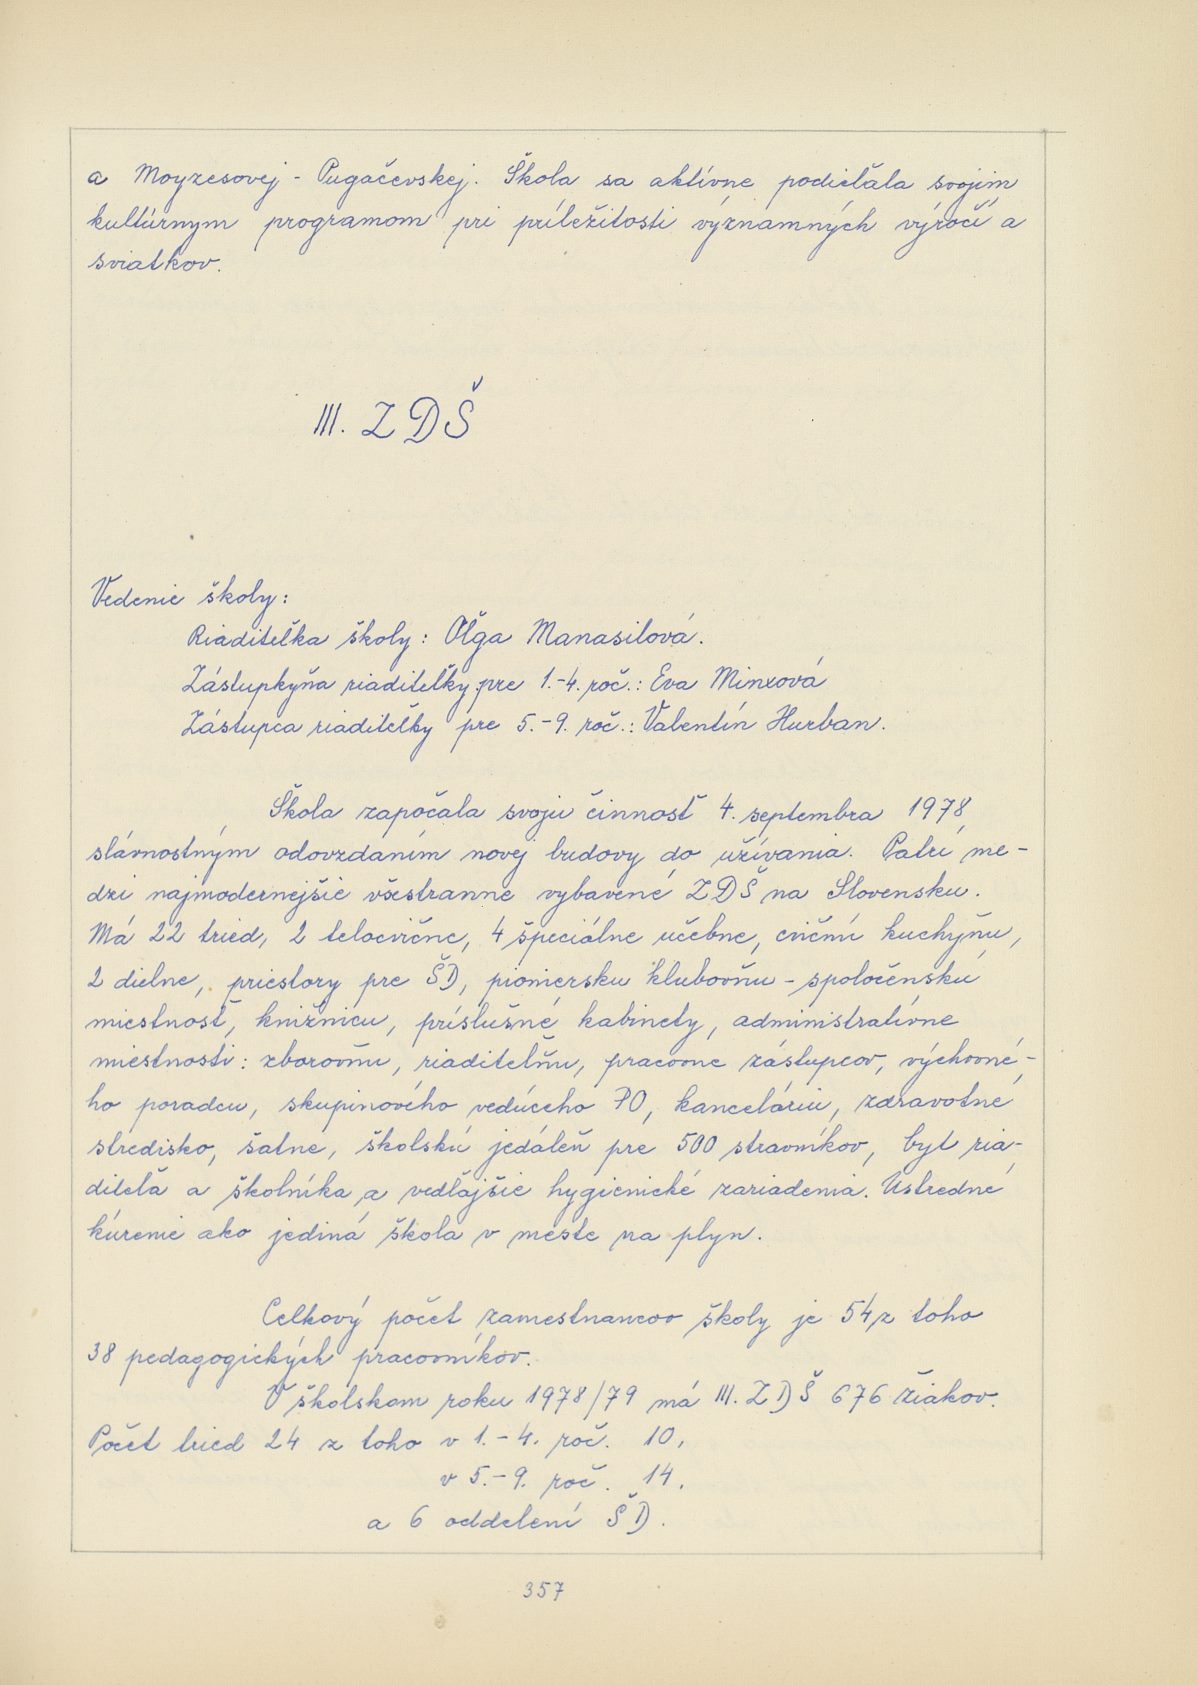 a Moyzesovej - Pugačevskej. Škola sa aktívne podieľala svojim
kultúrnym programom pri príležitosti významných výročí a
sviatkov.
III. ZDŠ
Vedenie školy:
Riaditeľka školy: Oľga Manasilová.
Zástupkyňa riaditeľky pre 1.-4. roč.: Eva Minxová
Zástupca riaditeľky pre 5.-9. roč.: Valentín Hurban.
Škola započala svoju činnosť 4. septembra 1978
slávnostným odovzdaním novej budovy do užívania. Patrí me-
dzi najmodernejšie všestranne vybavené ZDŠ na Slovensku.
Má 22 tried, 2 telocvične, 4 špeciálne učebne, cvičnú kuchyňu,
2 dielne, priestory pre ŠD, pioniersku klubovňu - spoločenskú
miestnosť, knižnicu, príslušné kabinety, administratívne
miestnosti: zborovňu, riaditeľňu, pracovne zástupcov, výchovné-
ho poradcu, skupinového vedúceho PO, kanceláriu, zdravotné
stredisko, šatne, školskú jedáleň pre 500 stravníkov, byt ria-
diteľa a školníka a vedľajšie hygienické zariadenia. Ústredné
kúrenie ako jediná škola v meste na plyn.
Celkový počet zamestnancov školy je 54 z toho
38 pedagogických pracovníkov.
V školskom roku 1978/79 má III. ZDŠ 676 žiakov.
Počet tried 24 z toho v 1.-4. roč. 10,
v 5.-9. roč. 14,
a 6 oddelení ŠD.
357